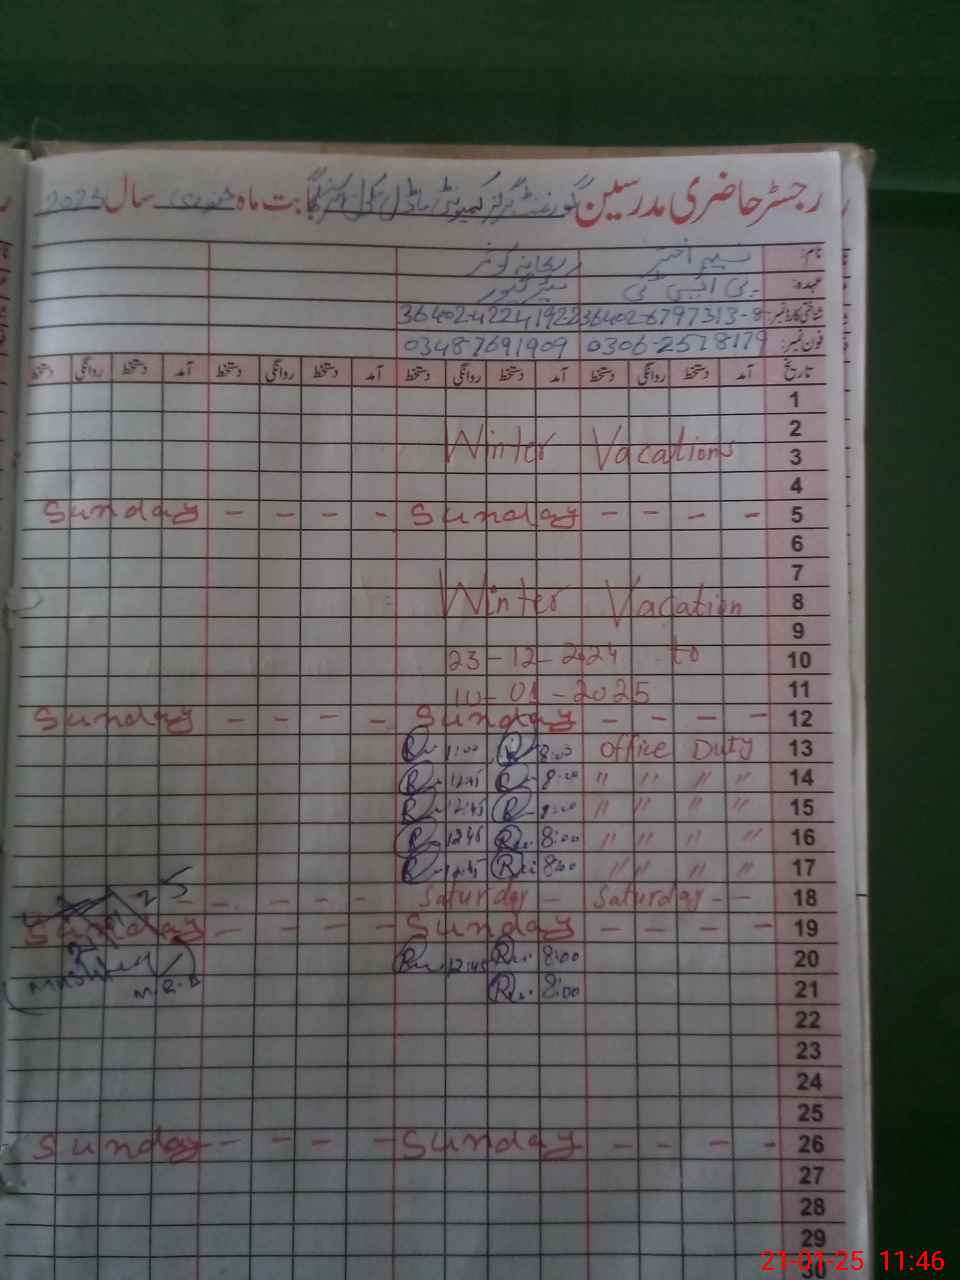 رجسٹر حاضری مدرسین گورنمنٹ گرلز کمیونٹی ماڈل سکول بابت ماہ جنوری سال 2025
نام: نسیم اختر ریحانہ کوثر
عہدہ: پی ایس ٹی
شناختی کارڈ نمبر 36402-6797313-8 36402-4224192
فون نمبر: 0306-2578179 03487691909
تاریخ آمد دستخط روانگی دستخط آمد دستخط روانگی دستخط آمد دستخط روانگی دستخط آمد دستخط روانگی دستخط
1
2
Winter Vacations
3
4
Sunday - - - - Sunday - - - - 5
6
7
Winter Vacation 8
9
23-12-2024 to 10
10-01-2025 11
Sunday - - - - Sunday - - - - 12
1:00 8:00 Office Duty 13
12:45 8:00 " " " " 14
12:45 8:00 " " " " 15
12:45 8:00 " " " " 16
12:45 8:00 " " " " 17
- - - - - Saturday - Saturday - - 18
Sunday - - - - Sunday - - - - 19
12:45 8:00 20
8:00 21
22
23
24
25
Sunday - - - - Sunday - - - - 26
27
28
29
30
21-01-25 11:46